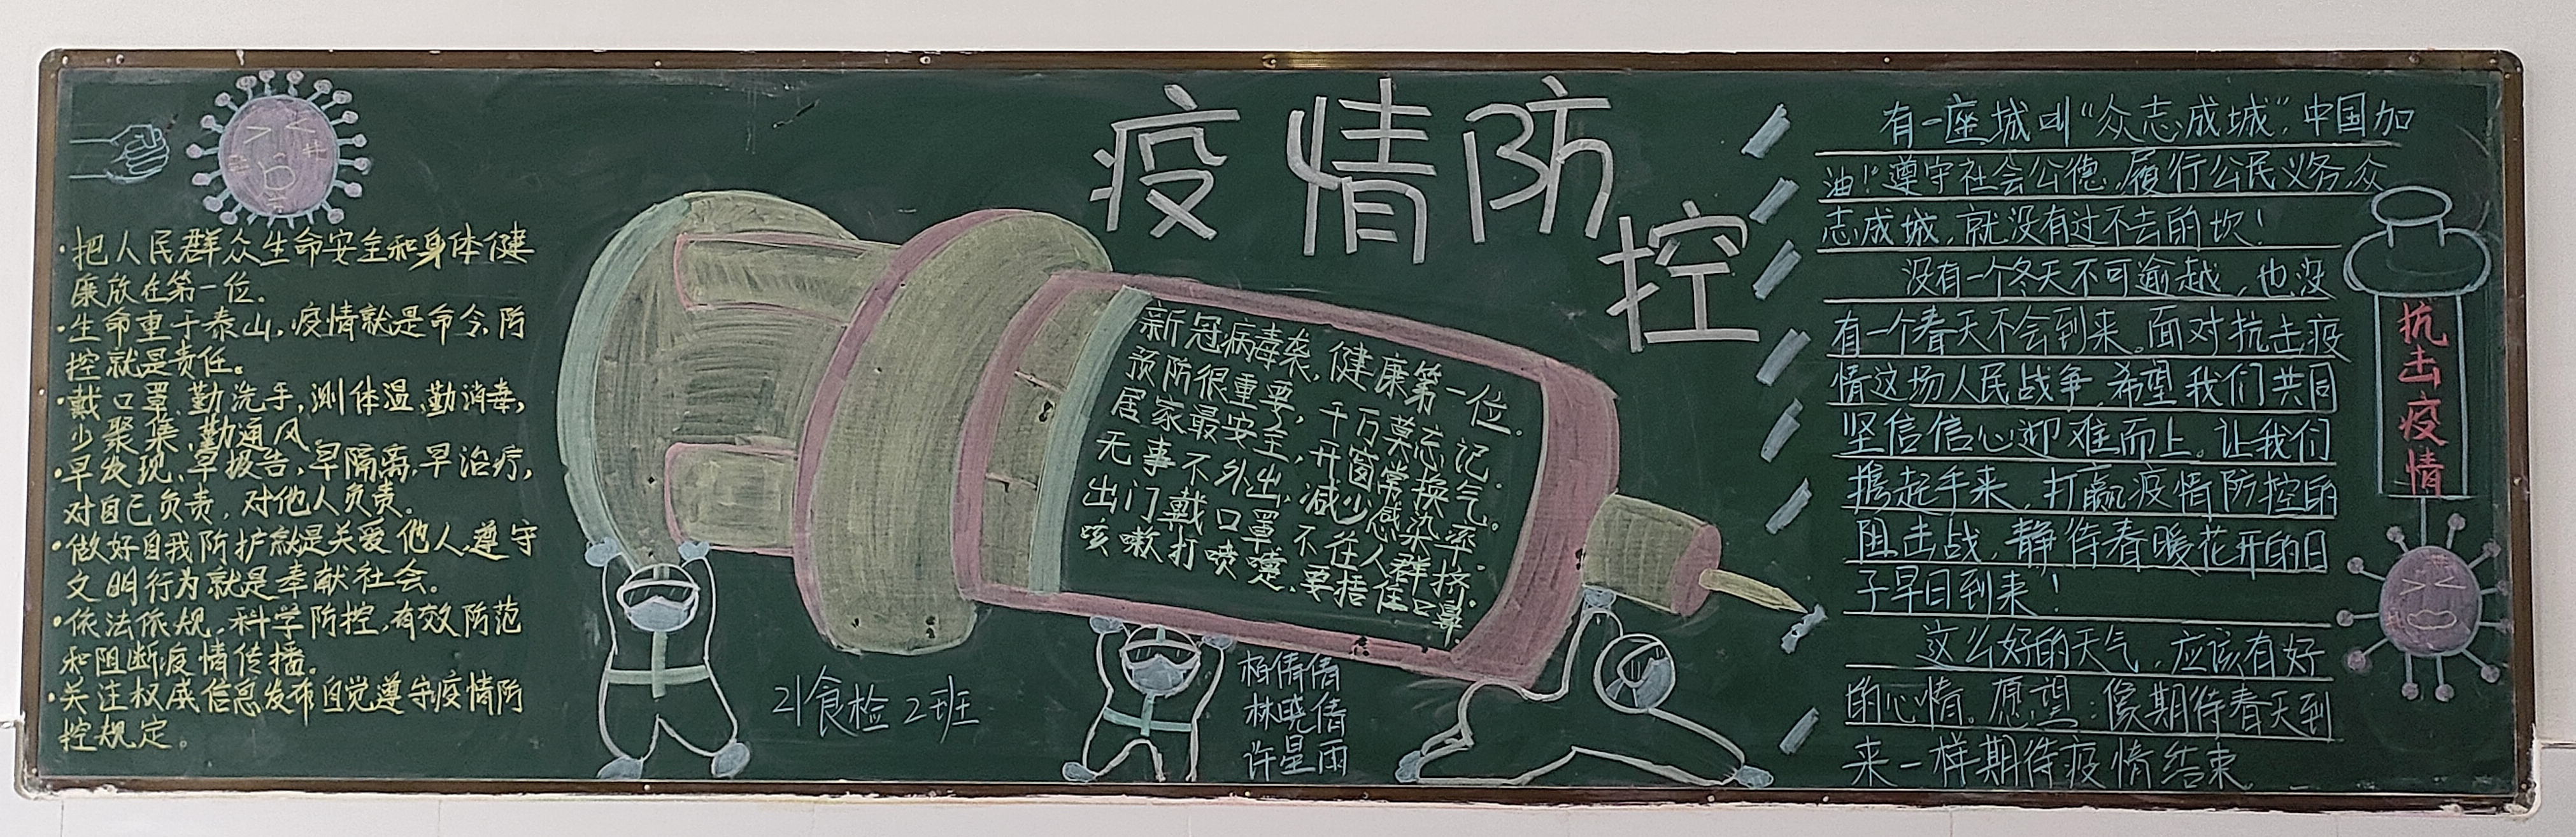 疫情防控
·把人民群众生命安全和身体健
康放在第一位。
·生命重于泰山,疫情就是命令,防
控就是责任。
·戴口罩、勤洗手,测体温、勤消毒,
少聚集、勤通风。
·早发现、早报告,早隔离,早治疗,
对自己负责,对他人负责。
·做好自我防护就是关爱他人,遵守
文明行为就是奉献社会。
·依法依规,科学防控,有效防范
和阻断疫情传播。
·关注权威信息发布自觉遵守疫情防
控规定。
新冠病毒袭,健康第一位.
预防很重要,千万莫忘记.
居家最安全,开窗常换气.
无事不外出,减少感染率.
出门戴口罩,不往人群挤.
咳嗽打喷嚏,要捂住口鼻.
21食检2班
柏倩倩
林晓倩
许星雨
有一座城叫“众志成城”,中国加
油!”遵守社会公德,履行公民义务,众
志成城,就没有过不去的坎!
没有一个冬天不可逾越,也没
有一个春天不会到来。面对抗击疫
情这场人民战争,希望我们共同
坚信信心迎难而上。让我们
携起手来,打赢疫情防控的
阻击战,静待春暖花开的日
子早日到来!
这么好的天气,应该有好
的心情。愿望:像期待春天到
来一样期待疫情结束
抗击疫情